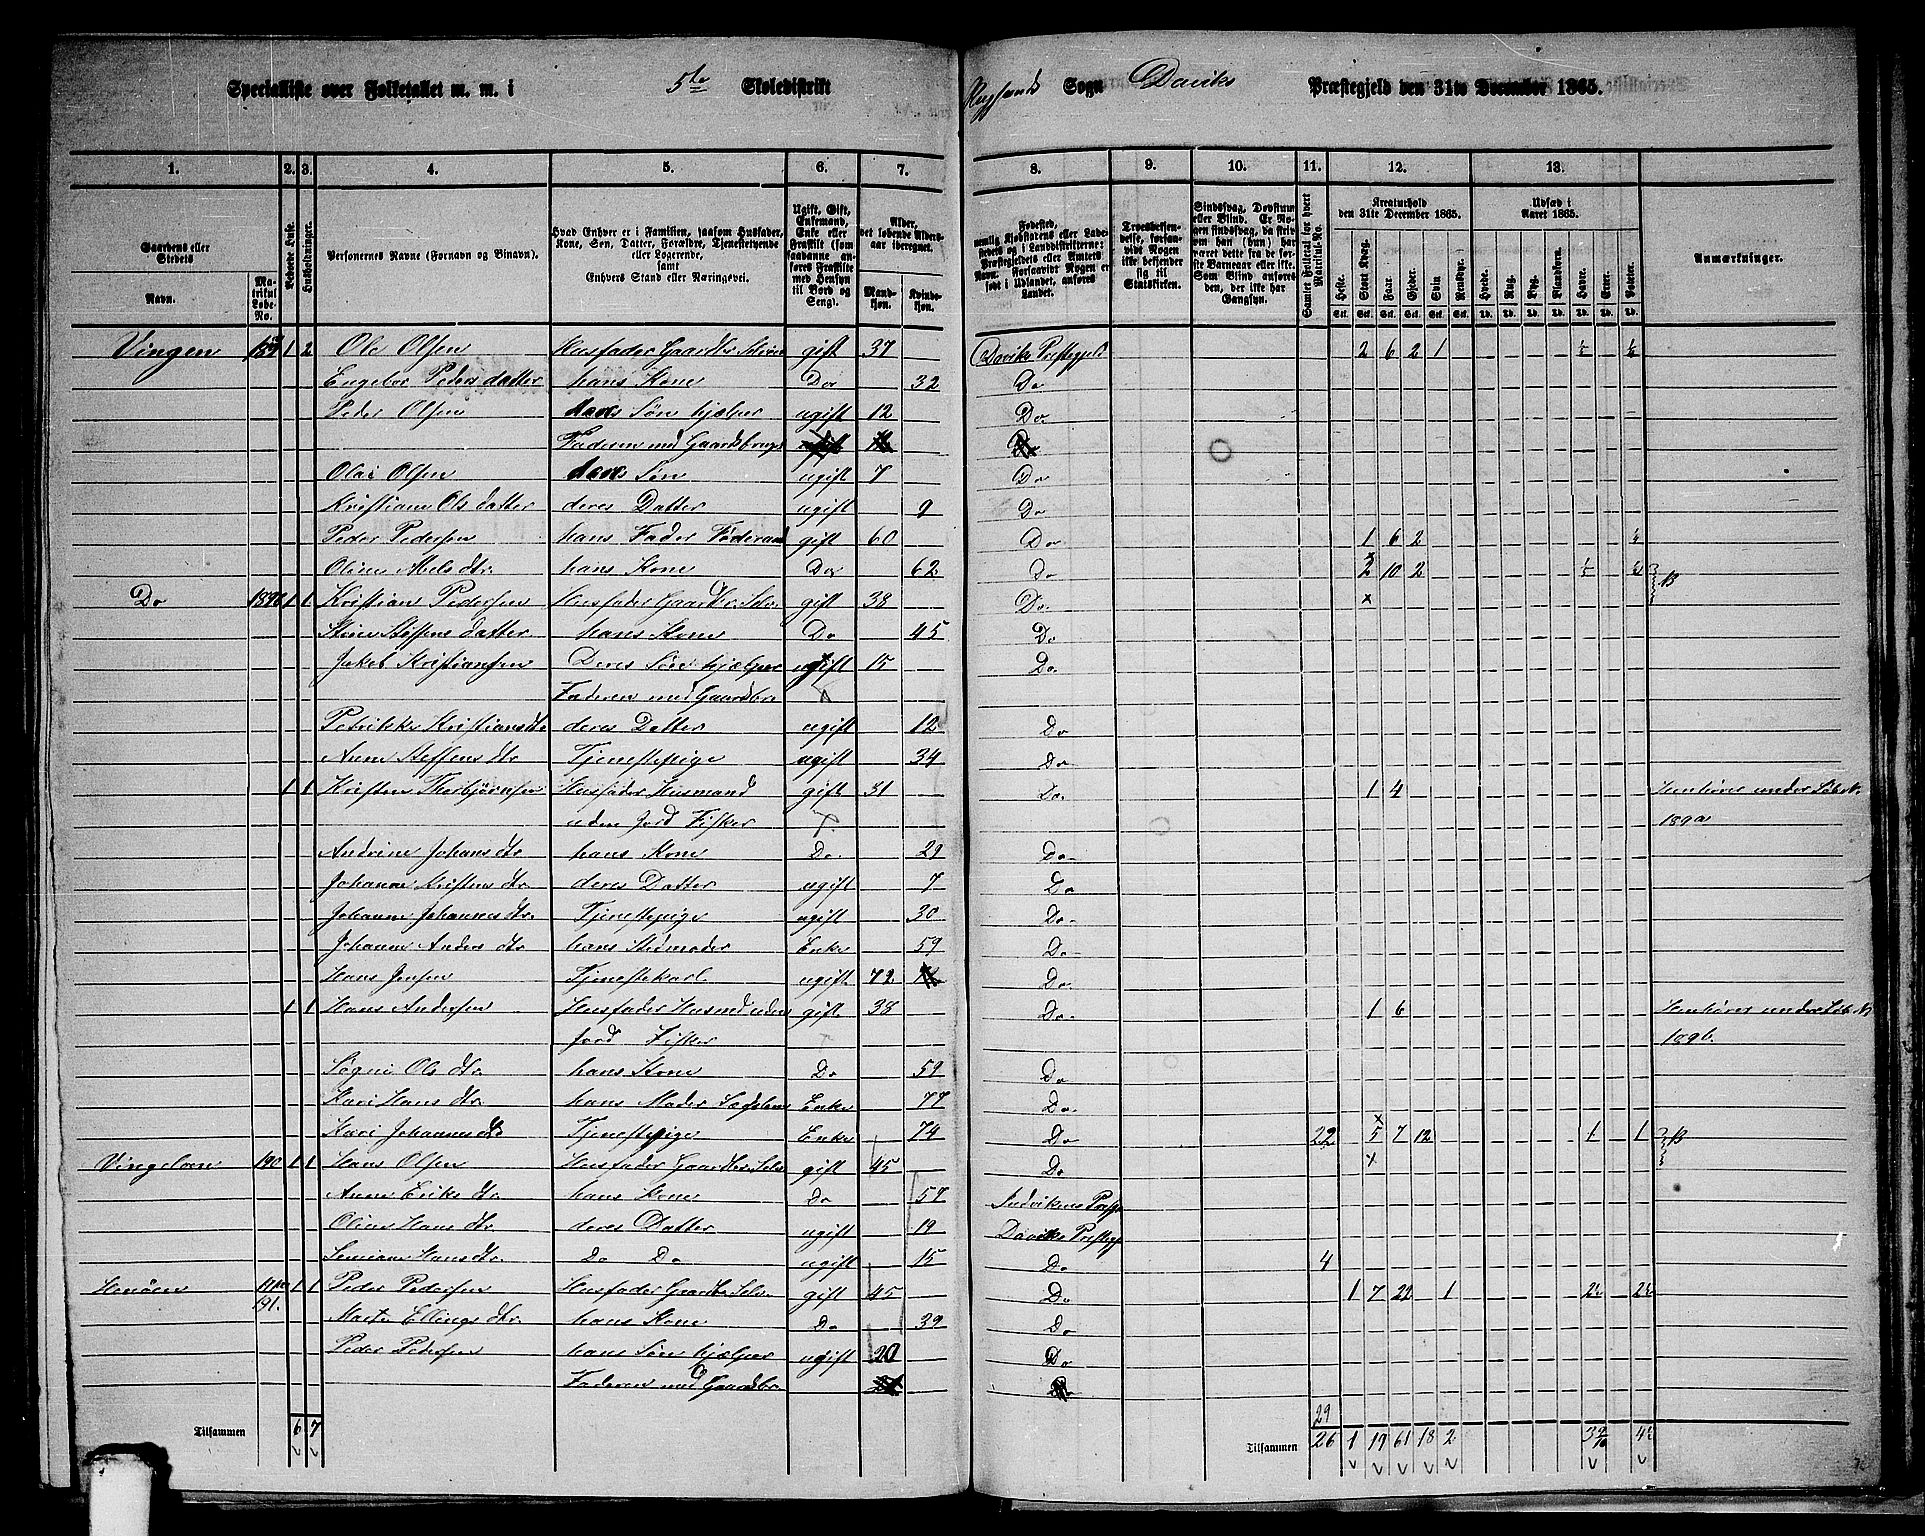 Specialliste over Folketallet m. m. i 5te Skoledistrikt Sogn Daviks Præstegjeld den 31te December 1865.
1. 2. 3. 4. 5. 6. 7. 8. 9. 10. 11. 12. 13.
Gaardens eller Stedets Navn. Matrikul Løbe-No. Beboede Huse. Husholdninger.
Personernes Navne (Fornavn og Binavn).
Hvad Enhver er i Familien, saasom Husfader, Kone, Søn, Datter, Forældre, Tjenestetyende eller Logerende, samt Enhvers Stand eller Næringsvei.
Ugift, Gift, Enkemand, Enke eller Fraskilt (som saadanne anføres Fraskilte med Hensyn til Bord og Seng).
Alder, det løbende Aldersaar iberegnet. Mandkjøn. Kvindekjøn.
Fødested, nemlig Kjøbstadens eller Ladestedets eller i Landdistrikterne: Præstegjeldets eller Amtets Navn. Forsaavidt Nogen er født i Udlandet, anføres Landet.
Troesbekjendelse, forsaavidt Nogen ikke bekjender sig til Statskirken.
Sindssvag, Døvstum eller Blind. Er Nogen sindssvag, da stiva om han (hun) har været det fra de første Barneaar eller ikke. Som Blind anføres den, der ikke har Gangsyn.
Samlet Folketal for hvert Matrikul-No.
Kreaturhold den 31te December 1865. Heste. Stort Kvæg. Faar. Gjeder. Svin. Rensdyr.
Udsæd i Aaret 1865. Hvede. Rug. Byg. Blandkorn. Havre. Erter. Poteter.
Anmærkninger.
Vingen 189 1 2 Ole Olsen Husfader Gaardbr. Selvei gift 37 Daviks Præstegjeld 2 6 2 1 ½ ½
Engebor Peders datter hans Kone Do 32 Do
Peder Olsen deres Søn hjælper ugift 12 Do
Faderen med Gaardsbruget
Olai Olsen deres Søn ugift 7 Do
Kristiane Ols datter deres Datter ugift 9 Do
Peder Pedersen hans Fader Føderaad gift 60 Do 1 6 2
Oline Mels dtr. hans Kone Do 62 Do 2 10 2 B
Do 189b 1 1 Kristian Pedersen Husfader Gaardbr. Selv. gift 38 Do. x
Steffens datter hans Kone Do 45 Do
Jakob Kristiansen Deres Søn hjælper ugift 15 Do.
Faderen med Gaardsbr
Petrikke Kristiansdtr deres Datter ugift 12 Do
Anne Steffens dtr Tjenestepige ugift 34 Do
1 1 Kristen Thorbjørnsen Husfader Husmand gift 31 Do. 1 4 Henhører under Løb. N.
uden Jord Fisker 189a
Andrine Johans dtr hans Kone Do. 29 Do
Johanne Kristens dtr. deres Datter ugift 7 Do
Johanne Johannes dtr. Tjenestepige ugift 30 Do
Johanne Anders dtr hans Stedmoder Enke 59 Do
Hans Jensen Tjenestekarl ugift 72 Do.
1 1 Hans Andersen Husfader Husmd uden gift 38 Do. 1 6 Henhører under Løb. N
Jord Fisker 189b.
Søgni Ols dtr. hans Kone Do 59 Do
Kari Hans dtr. hans Moder Enke 77 Do.
Kari Johannes dtr Tjenestepige Enke 74 Do 22 5 7 12 1 1 B
190 1 1 Hans Olsen Husfader Gaardbr. Selv gift 45 Do x
Anne Eriks dtr. hans Kone Do 57 Indvikens Præstg
Oline Hans dtr deres Datter ugift 19 Daviks Præsteg
Hans dtr. Do Do ugift 15 Do 4
Henøen 191. 1 1 Peder Pedersen Husfader Gaardbr. Selv. gift 45 Do 1 7 22 1 2½ 2½
Marte Ellings dtr. hans Kone Do 39 Do
Peder Pedersen hans Søn hjælper ugift 20 Do
Faderen med Gaardsbr
29
Tilsammen 6 7 Tilsammen 26 1 19 61 18 2